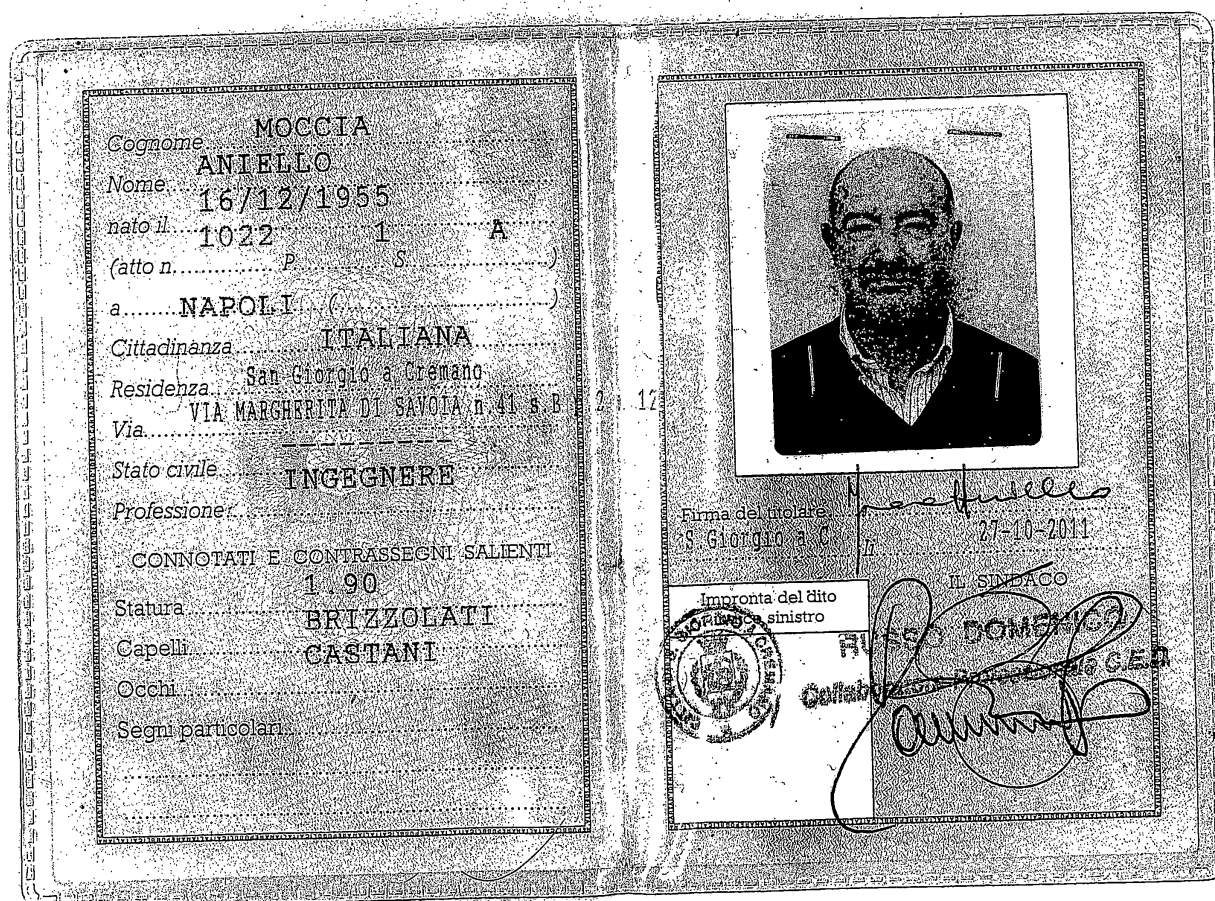 Cognome MOCCIA
Nome ANIELLO
nato il 16/12/1955
(atto n. 1022 P 1 S A )
a NAPOLI ( )
Cittadinanza ITALIANA
Residenza San Giorgio a Cremano
Via VIA MARGHERITA DI SAVOIA n.41 s.B 12
Stato civile ----------
Professione INGEGNERE
CONNOTATI E CONTRASSEGNI SALIENTI
Statura 1.90
Capelli BRIZZOLATI
Occhi CASTANI
Segni particolari
Firma del titolare
S Giorgio a C. lì 27-10-2011
IL SINDACO
Impronta del dito
indice sinistro
RUSSO DOMENICO
C.E.D.